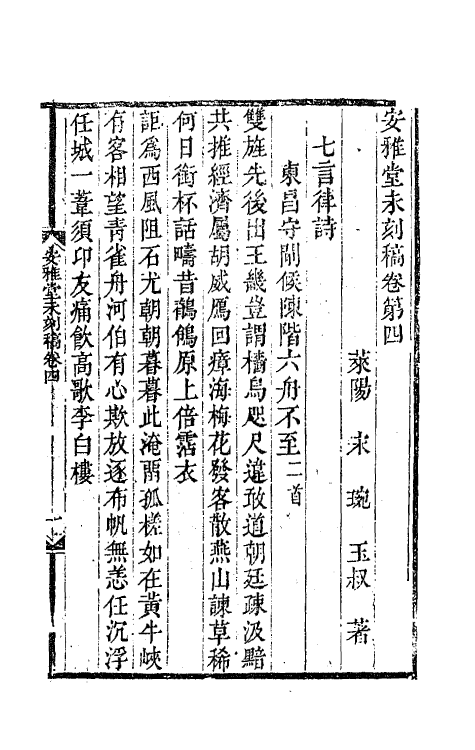 安雅堂未刻稿卷第四
萊陽 宋 琬 玉叔 著
七言律詩
東昌守閘候陳階六舟不至二首
雙旌先後出王畿豈謂檣烏咫尺違敢道朝廷疎汲黯
共推經濟屬胡威鴈回瘴海梅花發客散燕山諫草稀
何日銜杯話疇昔鶺鴒原上倍霑衣
詎為西風阻石尤朝朝暮暮此淹留孤槎如在黃牛峽
有客相望青雀舟河伯有心欺放逐布帆無恙任沉浮
任城一葦須卭友痛飲高歌李白樓
安雅堂未刻稿卷四
一